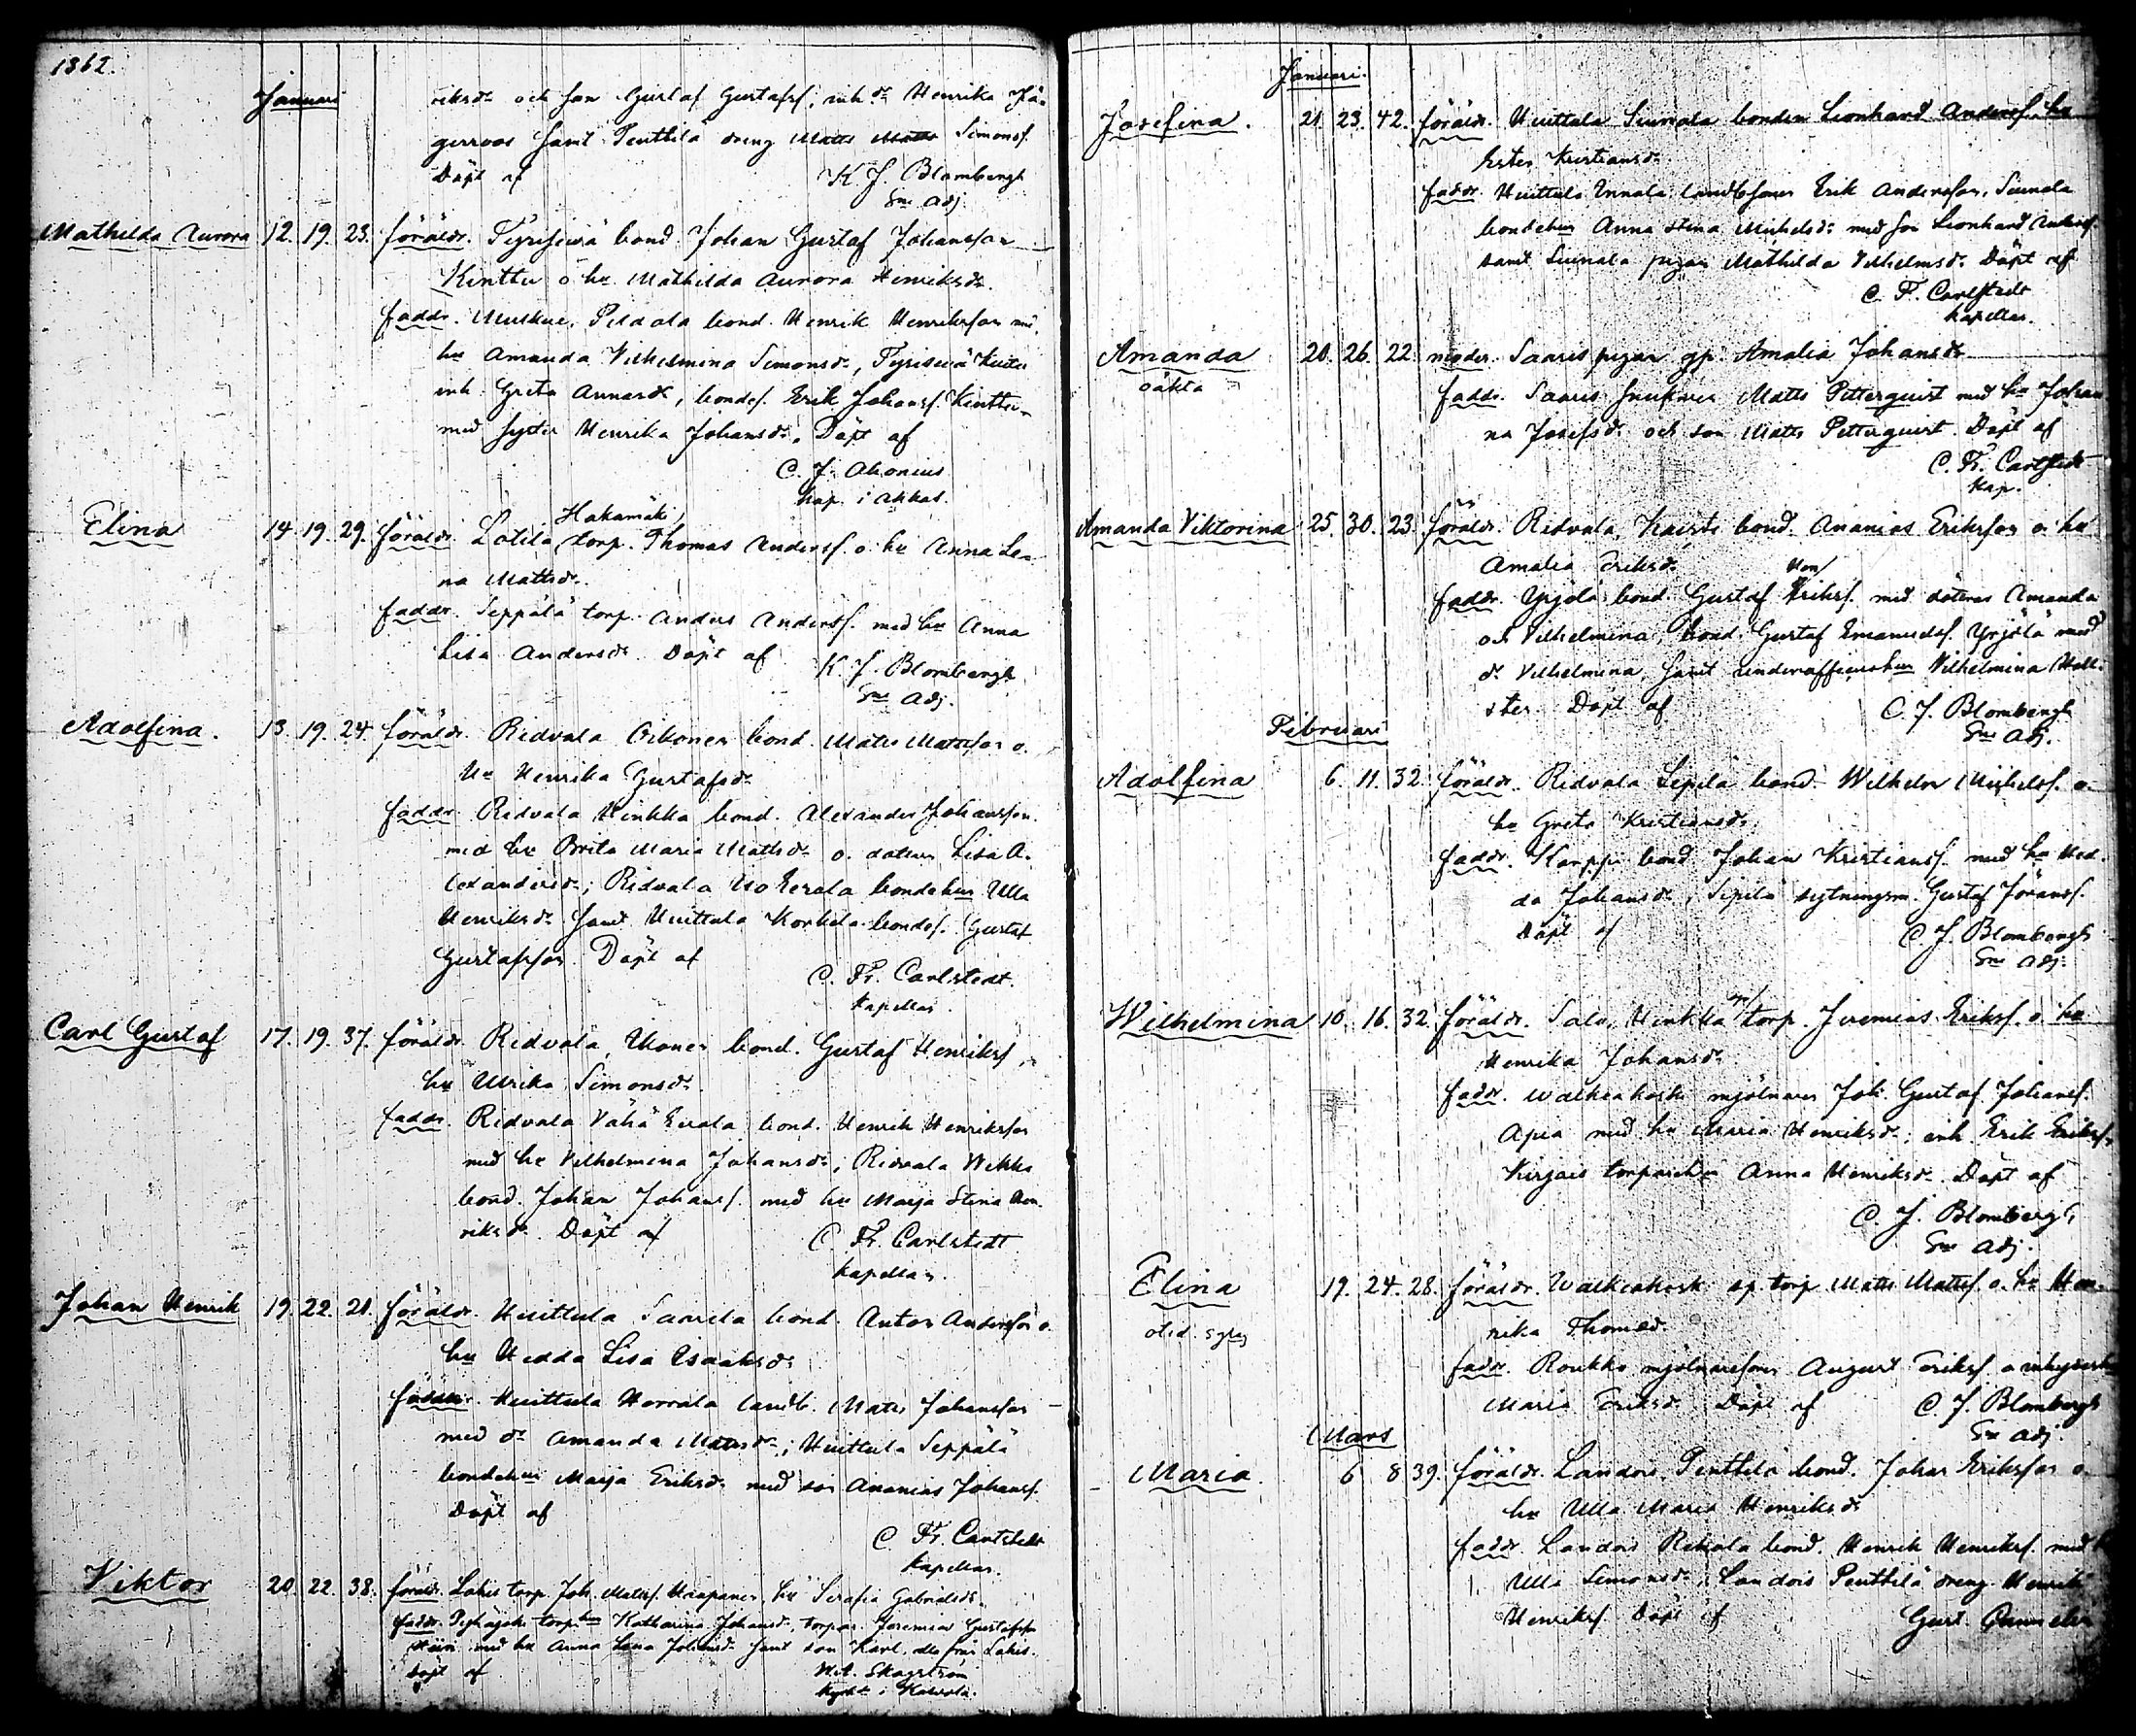 1862.
Januari
riksdr och son Gustaf Gustafsf, inhdr Henrika Jä-
gerroos samt Penttilä dreng Matts Matts Simonsf.
Döpt af K J. Blombergh
Sns Adj.
Mathilda Aurora 12. 19. 23. föräldr. bond. Johan Gustaf Johansson
Kinttu o hu Mathilda Aurora Henriksdr.
faddr. Muskue, Peldola bond. Henrik Henriksson me.
hu Amanda Vilhelmina Simonsdr,
inh. Greta Annasdr, bondes. Erik Johansf. Kinttu
med syster Henrika Johansdr. Döpt af
C. J. Ahonius
Kap. i Akkas.
Hakamäki
Elina 14. 19. 29. föräldr. Lotila torp. Thomas Andersf. o. hu Anna Le-
na Mattsdr.
faddr. Seppälä torp. Anders Andersf. med hu Anna
Lisa Andersdr Döpt af K. J. Blombergh
Sns Adj.
Adolfina. 13. 19. 24. föräldr. Ridvala Oikonen bond. Matts Mattsson o.
hu Henrika Gustafsdr
faddr. Ridvala Hinkka bond. Alexander Johansson.
med hu Brita Maria Mattsdr o. dotern Lisa A-
lexandersdr; Ridvala Iso Eerola bondehun Ulla
Henriksdr samt Huittula Korkela bondes. Gustaf
Gustafsson. Döpt af
C. Fr. Carlstedt.
Kapellan.
Carl Gustaf 17. 19. 37. föräldr. Ridvala, Ikonen bond. Gustaf Henriksf,
hu Ulrika Simonsdr.
faddr. Ridvala Vähä Eerola bond. Henrik Henriksson
med hu Vilhelmina Johansdr; Ridvala Wekka
bond. Johan Johansf. med hu Maija Stina Hen-
riksdr. Döpt af C. Fr. Carlstedt
Kapellan.
Johan Henrik 19. 22. 21. föräldr. Huittula Saurela bond. Anton Andersson o.
hu Hedda Lisa Isaaksdr
faddr. Huittula Horrala landb. Matts Johansson
med dr Amanda Mattsdr; Huittula Seppälä
bondehun Maija Eriksdr med son Ananias Johansf.
Döpt af
C Fr. Carlstedt
Kapellan.
Viktor 20. 22. 38. föräldr. Lahis torp. Joh. Mattsf. Haapanen, hu Serafia Gabrielsdr.
faddr. torphun Katharina Johansdr, torpar. Jeremias Gustafsson
med hu Anna Lena Johansdr samt son Karl, alla från Lahis.
Döpt af Skogström
Kyrkh. i Kalvola.
Januari.
Josefina. 21. 23. 42. föräldr. Huittula Suinala bonden Leonhard Andersf. hu
Ester Kristiansdr.
faddr. Huittula Ennala landbsonen Erik Andersson, Suinala
bondehun Anna Stina Michelsdr med son Leonhard Andersf.
samt Suinala pigan Mathilda Vilhelmsdr. Döpt af
C. F. Carlstedt
Kapellan.
Amanda 20. 26. 22. moder. Saaris pigan gp. Amalia Johansdr
oäkta
faddr. Saaris snickare Matts Petterqvist med hu Johan
na Josefsdr. och son Matts Petterqvist. Döpt af
C. Fr. Carlstedt
Kap.
Amanda Viktorina 25. 30. 23. föräldr. Ridvala, Kaisti bond. Ananias Eriksson o. hu
Amalia Eriksdr.
Hen/
faddr. Yrjölä bond. Gustaf Eriksf. med dötrar Amanda
och Vilhelmina, bond. Gustaf Emanuelsf. Yrjölä med
dr Vilhelmina, samt underofficershun Vilhelmina Holl-
ster. Döpt af C. J. Blombergh
Sns Adj.
Februari
Adolfina 6. 11. 32. föräldr. Ridvala Sepilä bond. Wilhelm Michelsf. o.
hu Greta Kristiansdr.
faddr. Karppi bond Johan Kristiansf. med hu Hed-
da Johansdr, Sepilä sytningsm. Gustaf Göransf.
Döpt af C. J. Blombergh
Sns Adj.
Wilhelmina 10. 16. 32. föräldr. Salo, Hinkka torp. Jeremias Eriksf. o. hu
Henrika Johansdr.
faddr. Walkeakoski mjölnaren Joh. Gustaf Johansf.
Apia med hu Maria Henriksdr; inh. Erik Eriksf,
torparehu Anna Henriksdr. Döpt af
C. J. Blombergh,
Sns Adj.
Elina 19. 24. 28. föräldr. Walkeakoski sp. torp. Matts Mattsf. o. hu Hen-
rika Thomasdr.
faddr. Roukko mjölnaresonen August Eriksf. o
Maria Eriksdr. Döpt af C. J. Blombergh
Sns Adj
Mars
Maria. 6 8 39. föräldr. Landois, Penttilä bond. Johan Eriksson o.
hu Ulla Maria Henriksdr
faddr. Landois Rekola bond. Henrik Henriksf. med
Ulla Simonsdr; Landois Penttilä dreng Henrik
Henriksf. Döpt af Gust.